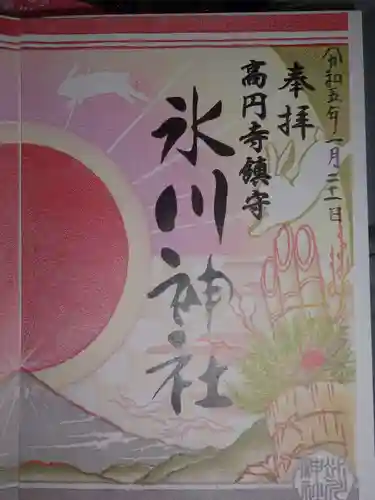 令和五年一月二十一日
奉拝
高円寺鎮守
氷川神社